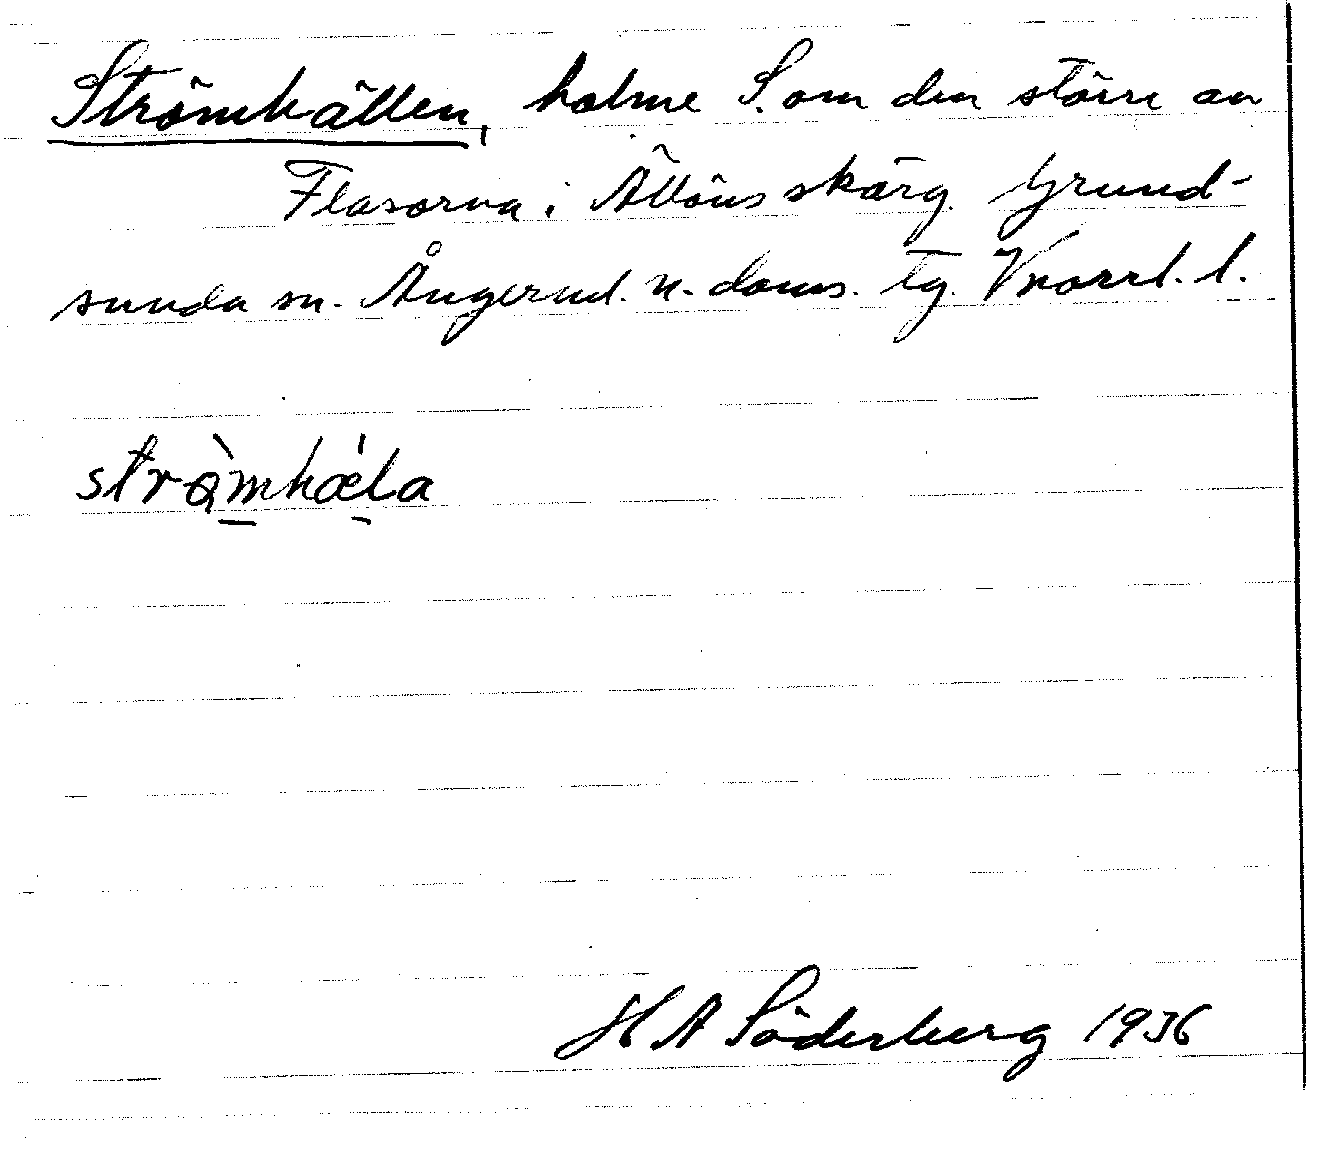 Strömhällen, holme S. om den större av
Flasorna i Ällöns skärg. Grund-
sunda sn. Ångerml. n. doms. tg. Vnorrl. l.
strø̀mhæ´la
H A Söderberg 1936